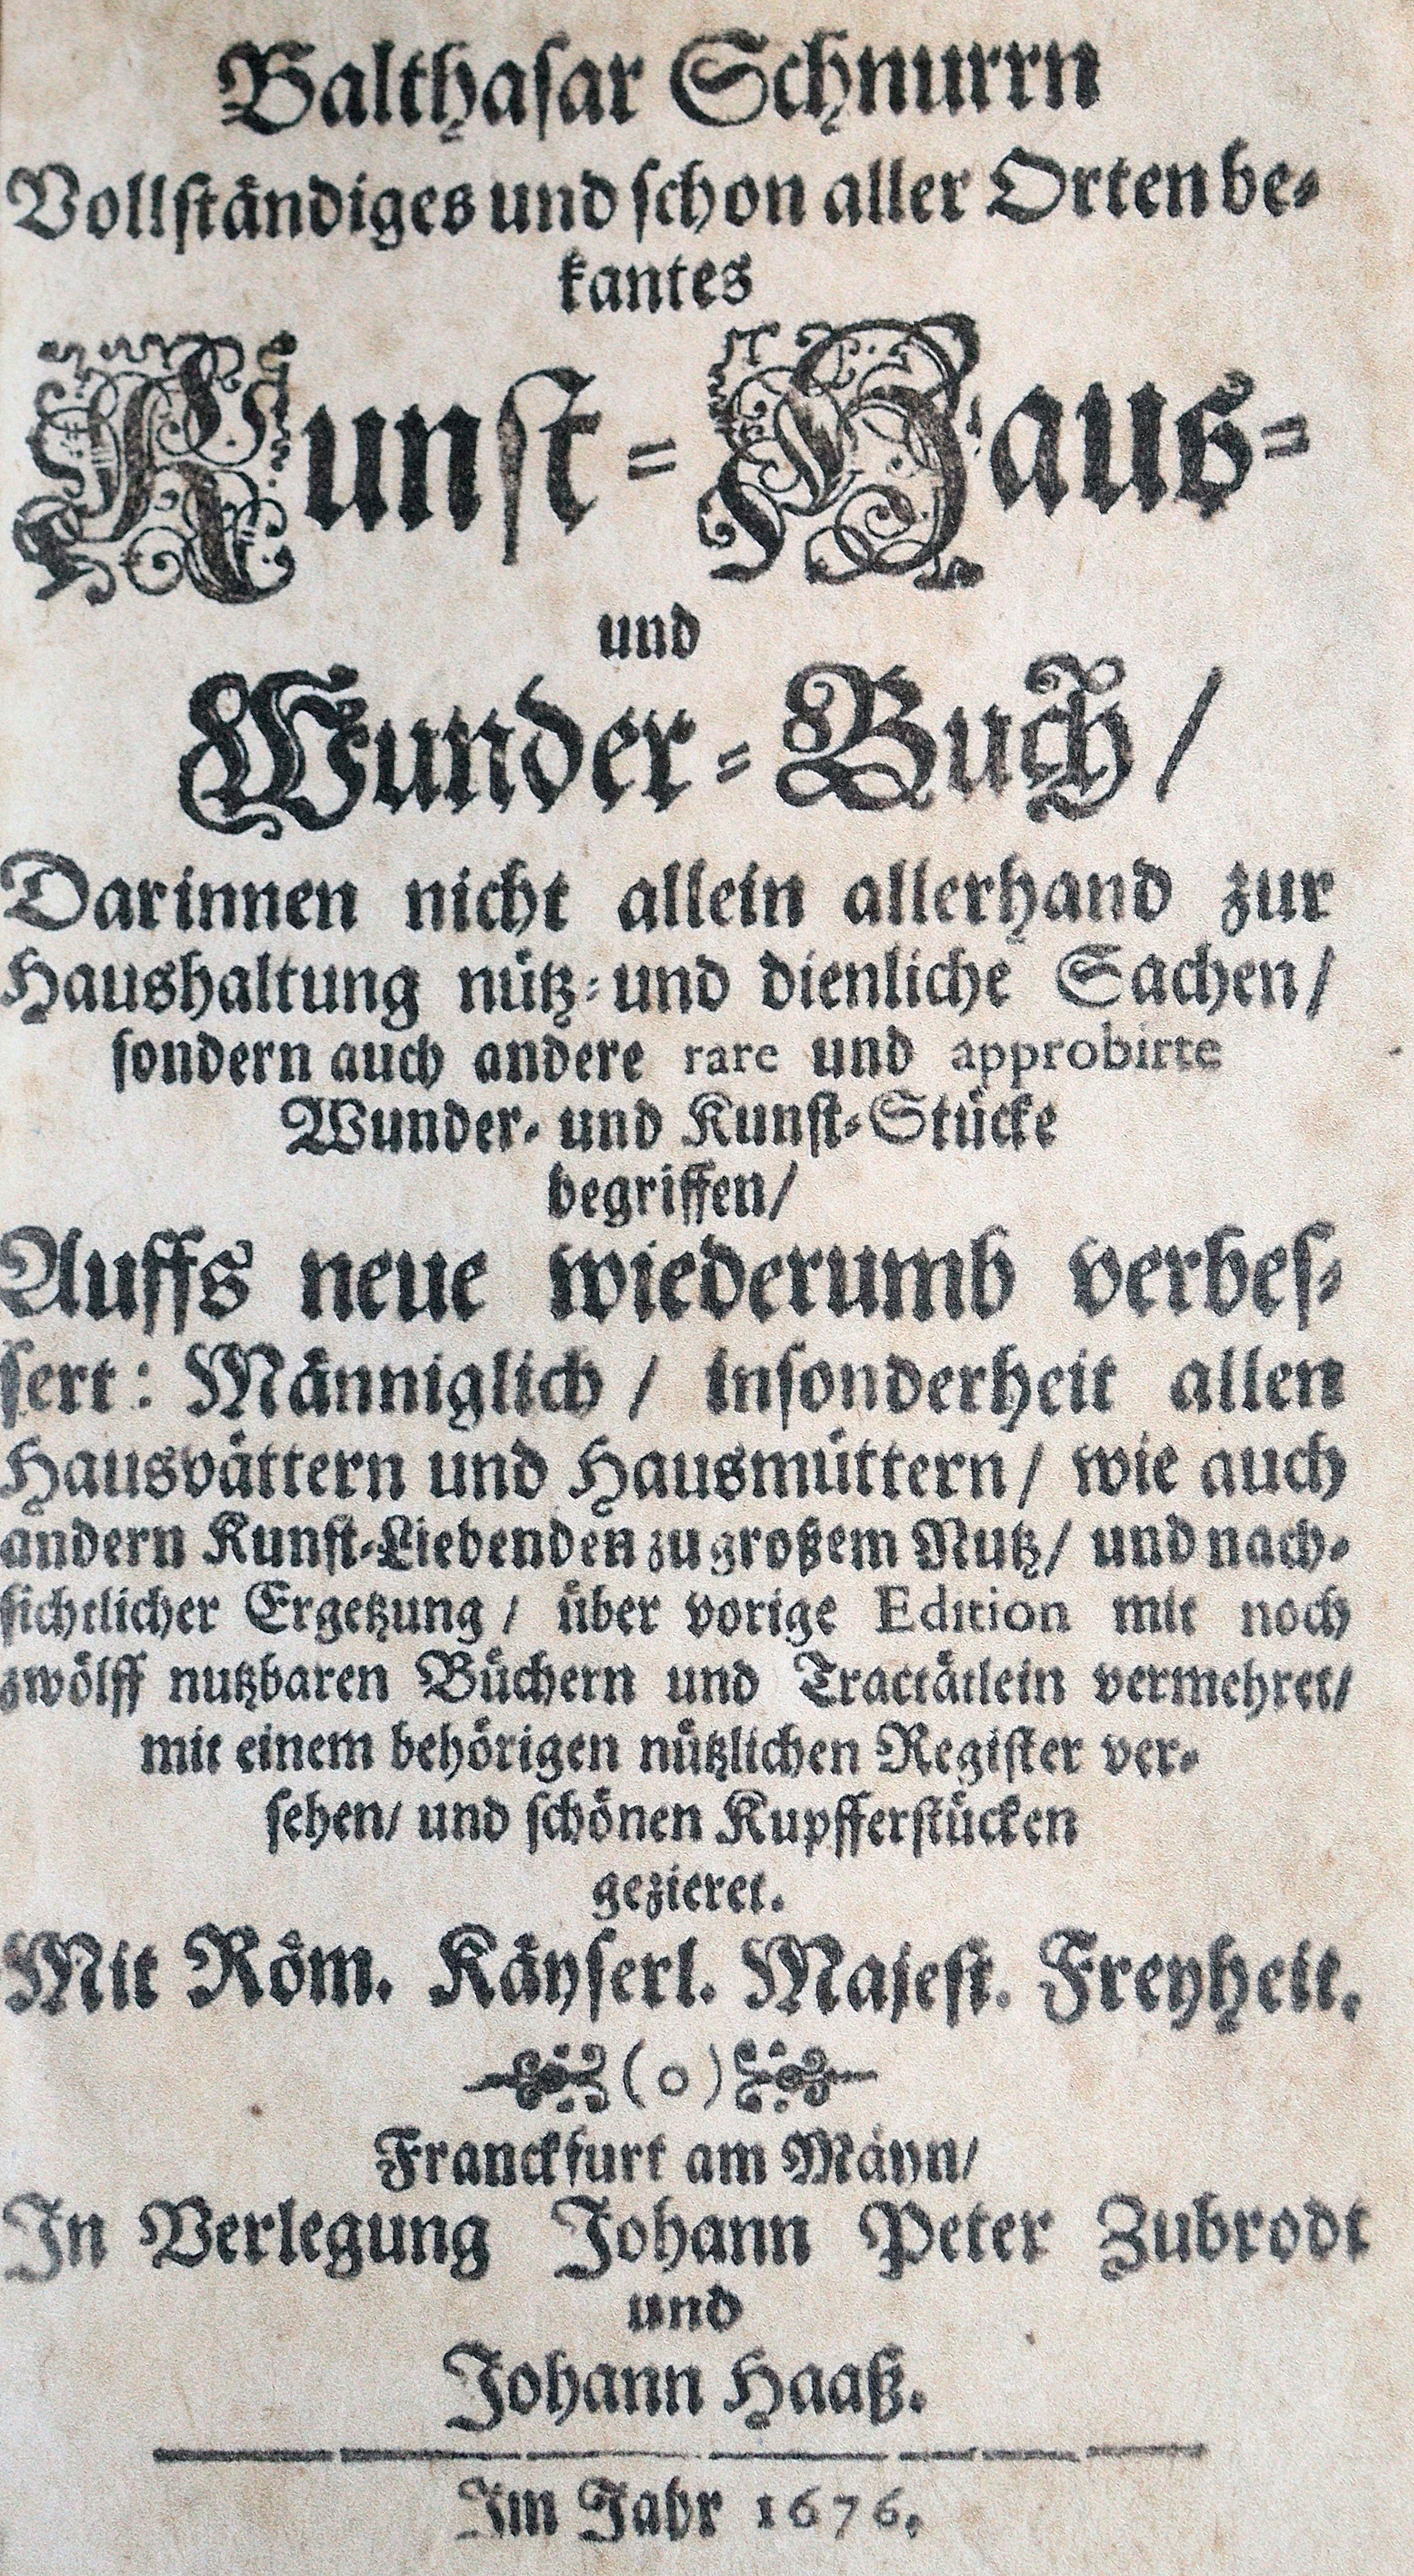 Balthasar Schnurrn
Vollständiges und schon aller Orten be-
kantes
Kunst-Haus-
und
Wunder-Buch/
Darinnen nicht allein allerhand zur
Haushaltung nütz- und dienliche Sachen/
sondern auch andere rare und approbirte
Wunder- und Kunst-Stücke
begriffen/
Auffs neue wiederumb verbes-
sert: Männiglich / insonderheit allen
Hausvättern und Hausmüttern / wie auch
andern Kunst-Liebenden zu großem Nutz/ und nach-
sichtlicher Ergetzung / über vorige Edition mit noch
zwölff nutzbaren Büchern und Tractätlein vermehret/
mit einem behörigen nützlichen Register ver-
sehen/ und schönen Kupfferstücken
gezieret.
Mit Röm. Käyserl. Majest. Freyheit.
(o)
Franckfurt am Mäyn/
In Verlegung Johann Peter Zubrodt
und
Johann Haaß.
Im Jahr 1676.